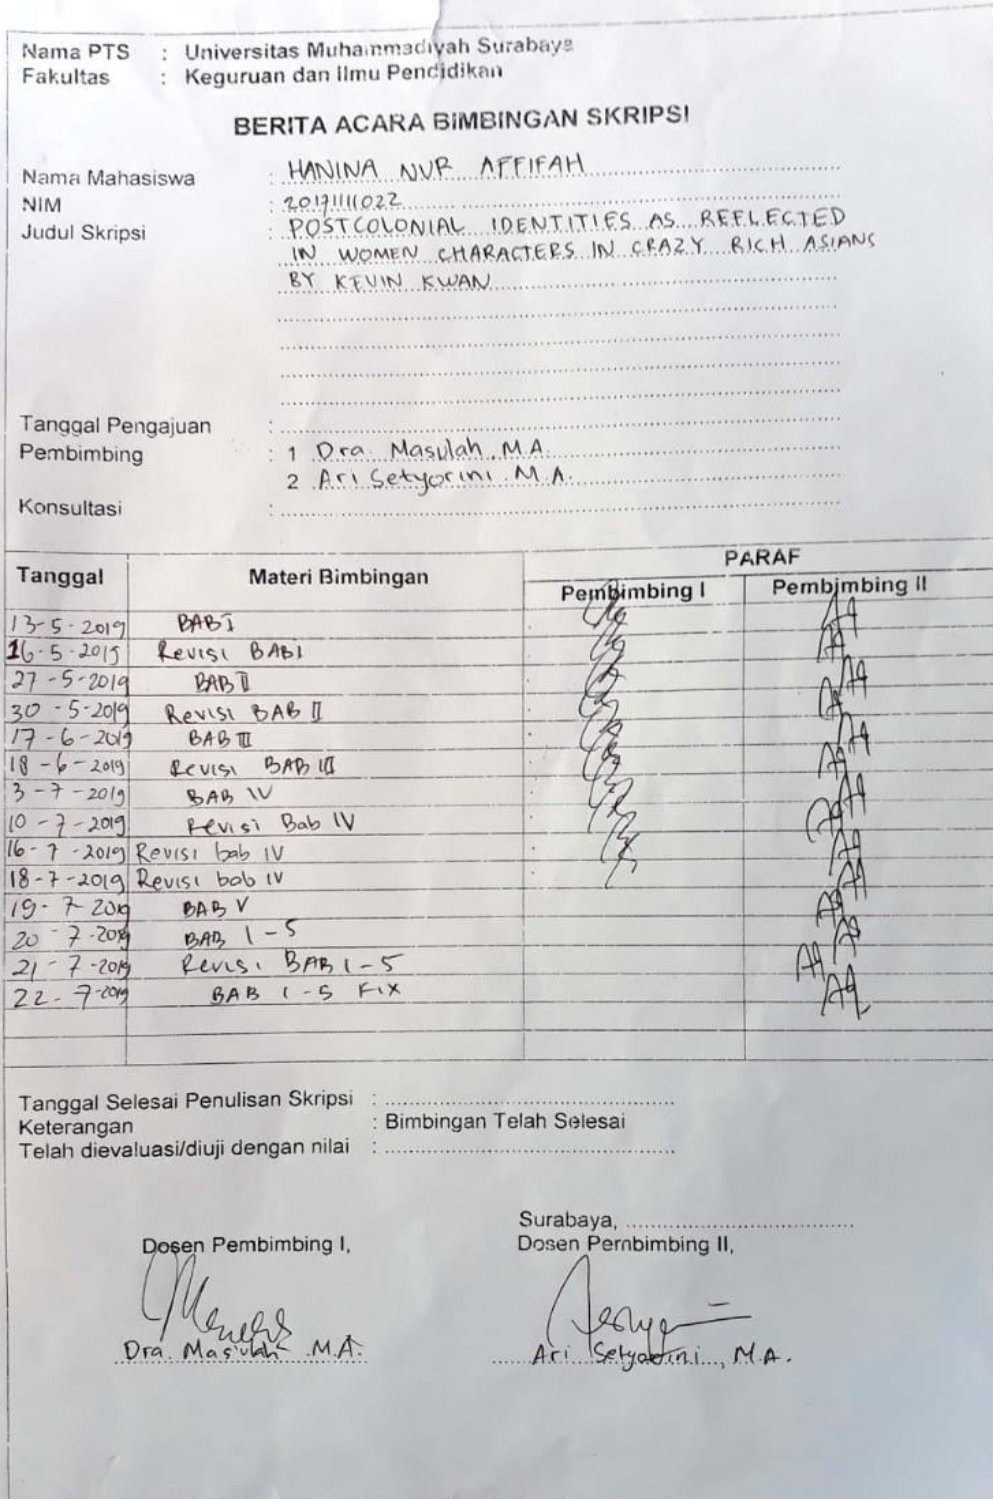 Nama PTS : Universitas Muhammadiyah Surabaya
Fakultas : Keguruan dan Ilmu Pendidikan
BERITA ACARA BIMBINGAN SKRIPSI
Nama Mahasiswa : HANINA NUR AFFIFAH
NIM : 20171111022
Judul Skripsi : POSTCOLONIAL IDENTITIES AS REFLECTED
IN WOMEN CHARACTERS IN CRAZY RICH ASIANS
BY KEVIN KWAN
Tanggal Pengajuan :
Pembimbing : 1 Dra. Masulah, M.A.
2 Ari Setyorini. M.A.
Konsultasi :
Tanggal Materi Bimbingan PARAF
Pembimbing I Pembimbing II
13-5-2019 BAB I
16-5-2019 Revisi BAB I
27-5-2019 BAB II
30-5-2019 Revisi BAB II
17-6-2019 BAB III
18-6-2019 Revisi BAB III
3-7-2019 BAB IV
10-7-2019 Revisi Bab IV
16-7-2019 Revisi bab IV
18-7-2019 Revisi bab IV
19-7-2019 BAB V
20-7-2019 BAB 1-5
21-7-2019 Revisi BAB 1-5
22-7-2019 BAB 1-5 FIX
Tanggal Selesai Penulisan Skripsi :
Keterangan : Bimbingan Telah Selesai
Telah dievaluasi/diuji dengan nilai :
Surabaya,
Dosen Pembimbing I, Dosen Pembimbing II,
Dra. Masulah M.A. Ari Setyorini, M.A.